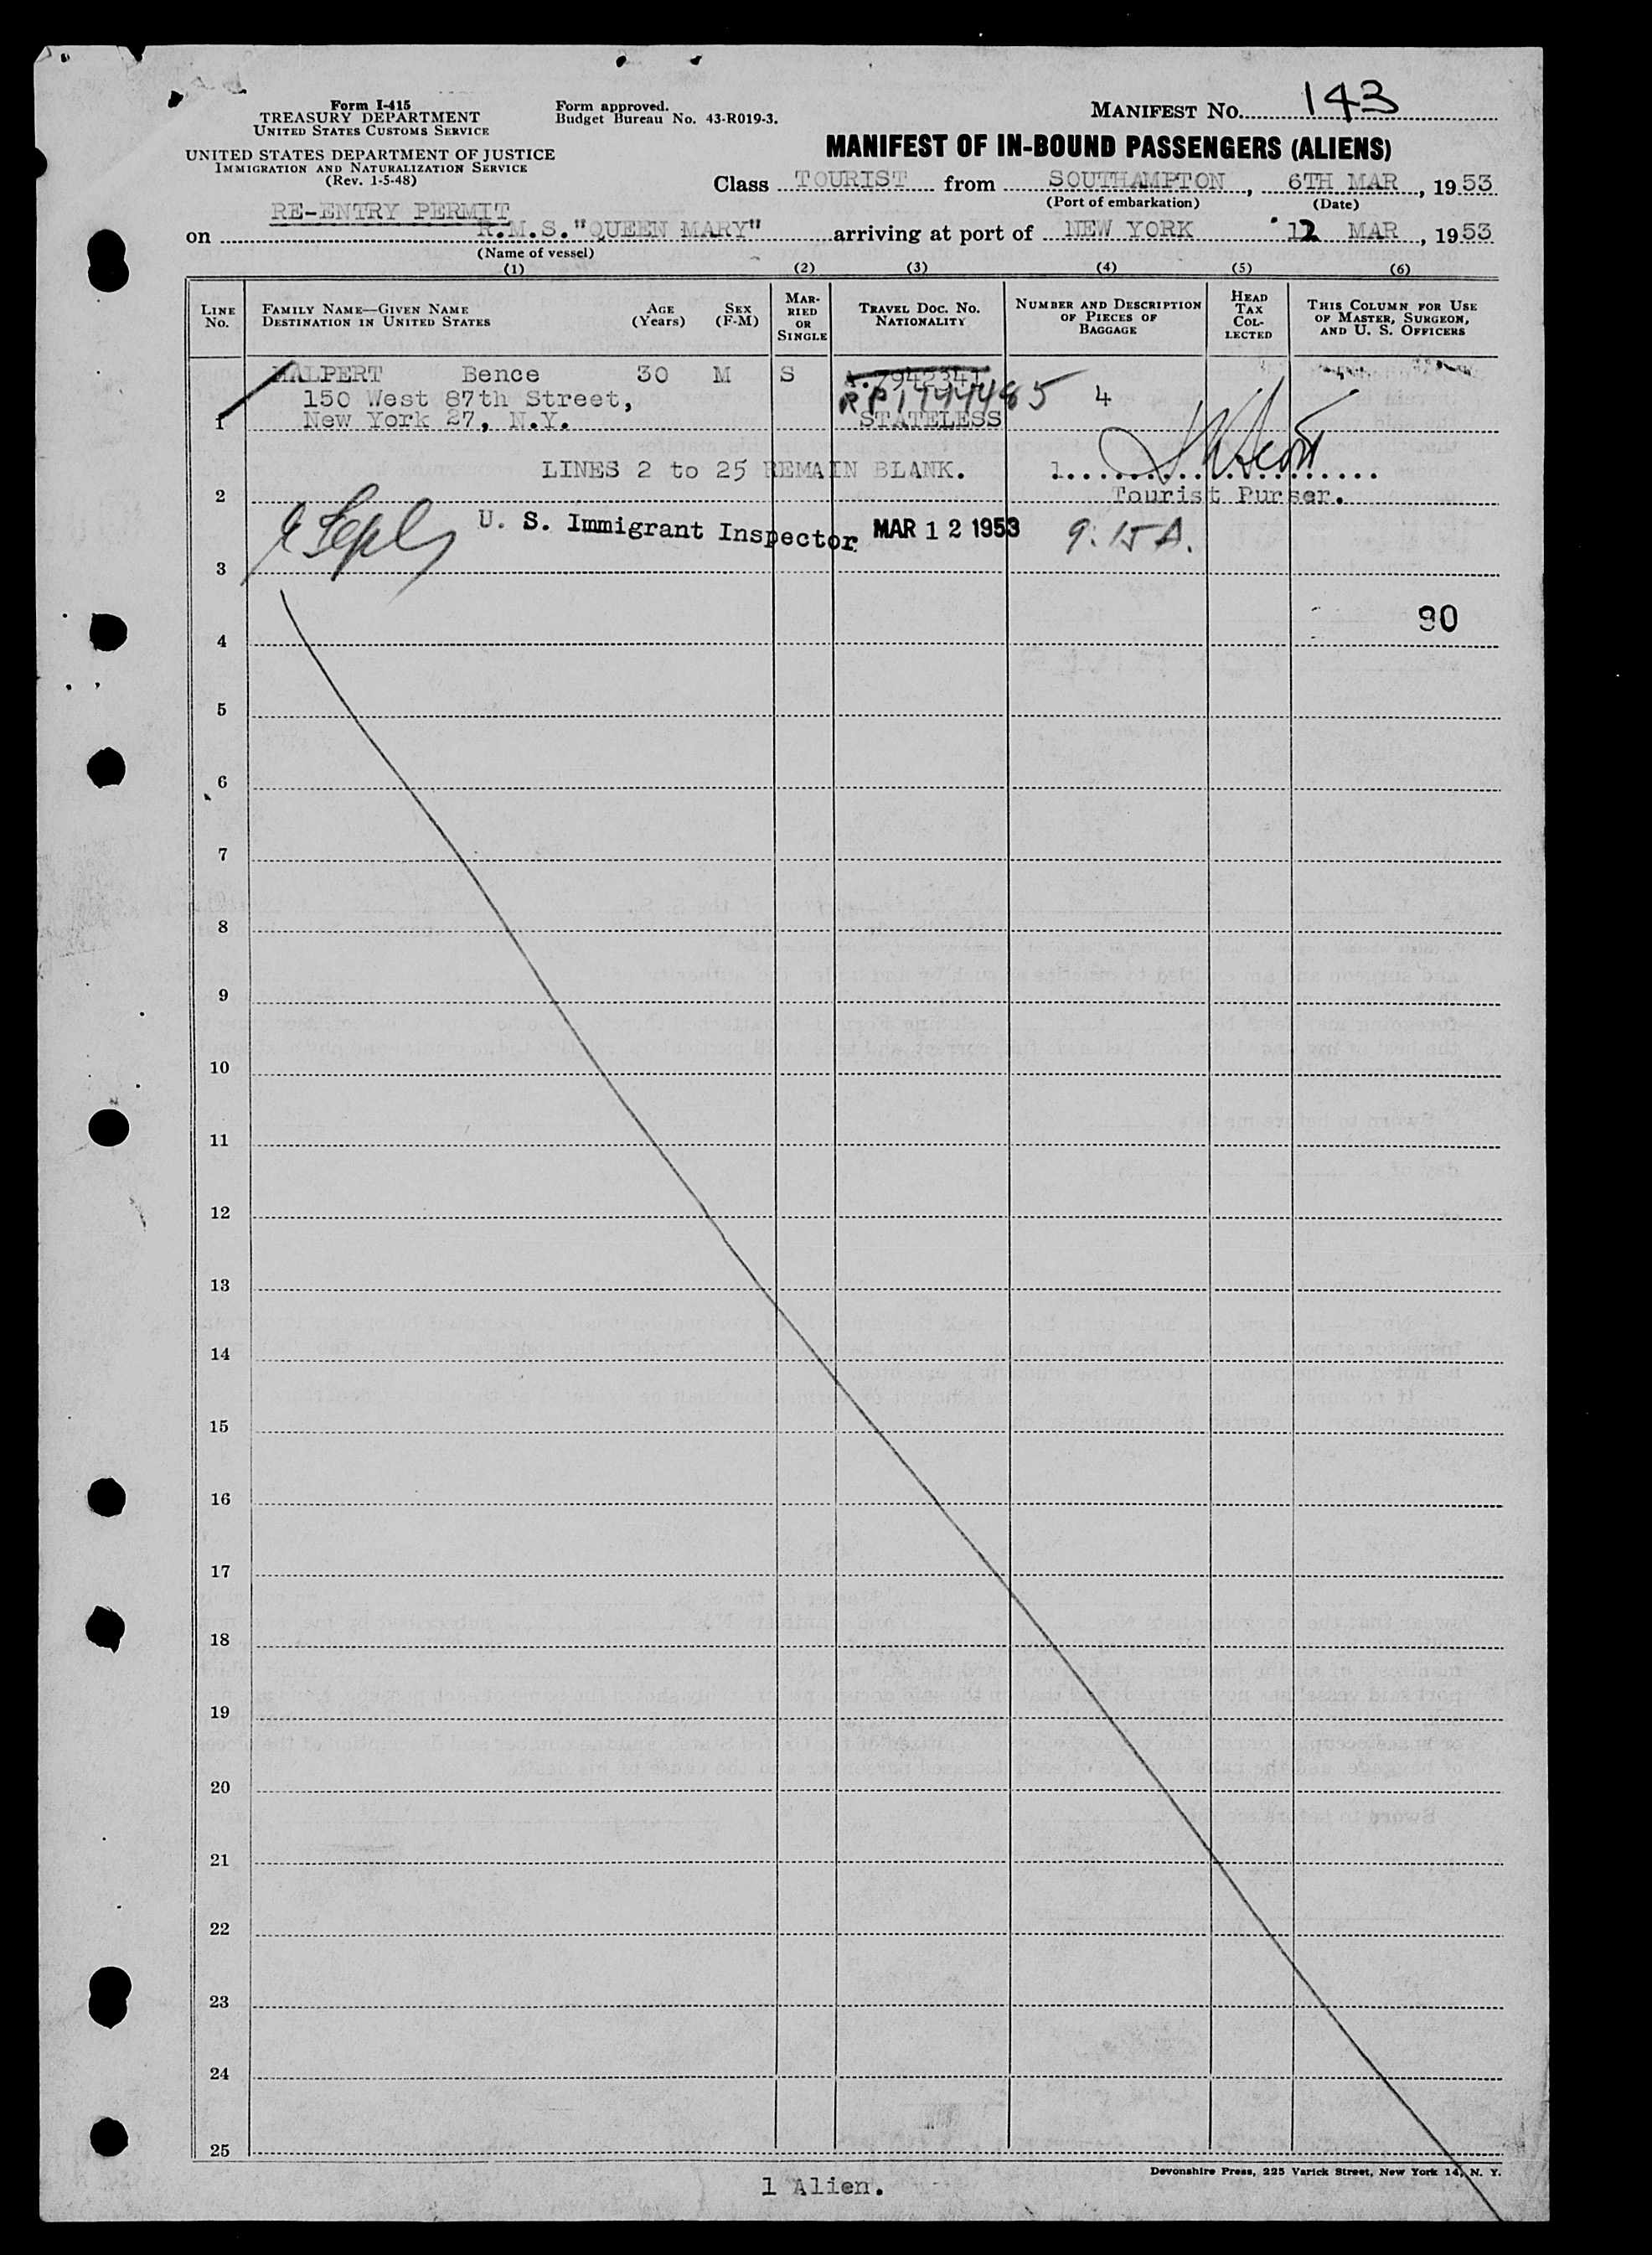 Form I-415
TREASURY DEPARTMENT
UNITED STATES CUSTOMS SERVICE
UNITED STATES DEPARTMENT OF JUSTICE
IMMIGRATION AND NATURALIZATION SERVICE
(Rev. 1-5-48)
Form approved.
Budget Bureau No. 43-R019-3.
MANIFEST NO. 143
MANIFEST OF IN-BOUND PASSENGERS (ALIENS)
Class TOURIST from SOUTHAMPTON, 6TH MAR, 1953
(Port of embarkation) (Date)
RE-ENTRY PERMIT
on R.M.S."QUEEN MARY" arriving at port of NEW YORK 12 MAR, 1953
(Name of vessel)
(1) (2) (3) (4) (5) (6)
LINE NO.
FAMILY NAME—GIVEN NAME
DESTINATION IN UNITED STATES
AGE (Years)
SEX (F-M)
MARRIED OR SINGLE
TRAVEL DOC. NO.
NATIONALITY
NUMBER AND DESCRIPTION OF PIECES OF BAGGAGE
HEAD TAX COLLECTED
THIS COLUMN FOR USE OF MASTER, SURGEON, AND U. S. OFFICERS
HALPERT Bence 30 M S 7942341
150 West 87th Street, 4
1 New York 27, N.Y. STATELESS
LINES 2 to 25 REMAIN BLANK. 1
2 Tourist Purser.
U. S. Immigrant Inspector MAR 12 1953 9:15 A.
3
90
4
5
6
7
8
9
10
11
12
13
14
15
16
17
18
19
20
21
22
23
24
25
Devonshire Press, 225 Varick Street, New York 14, N. Y.
1 Alien.